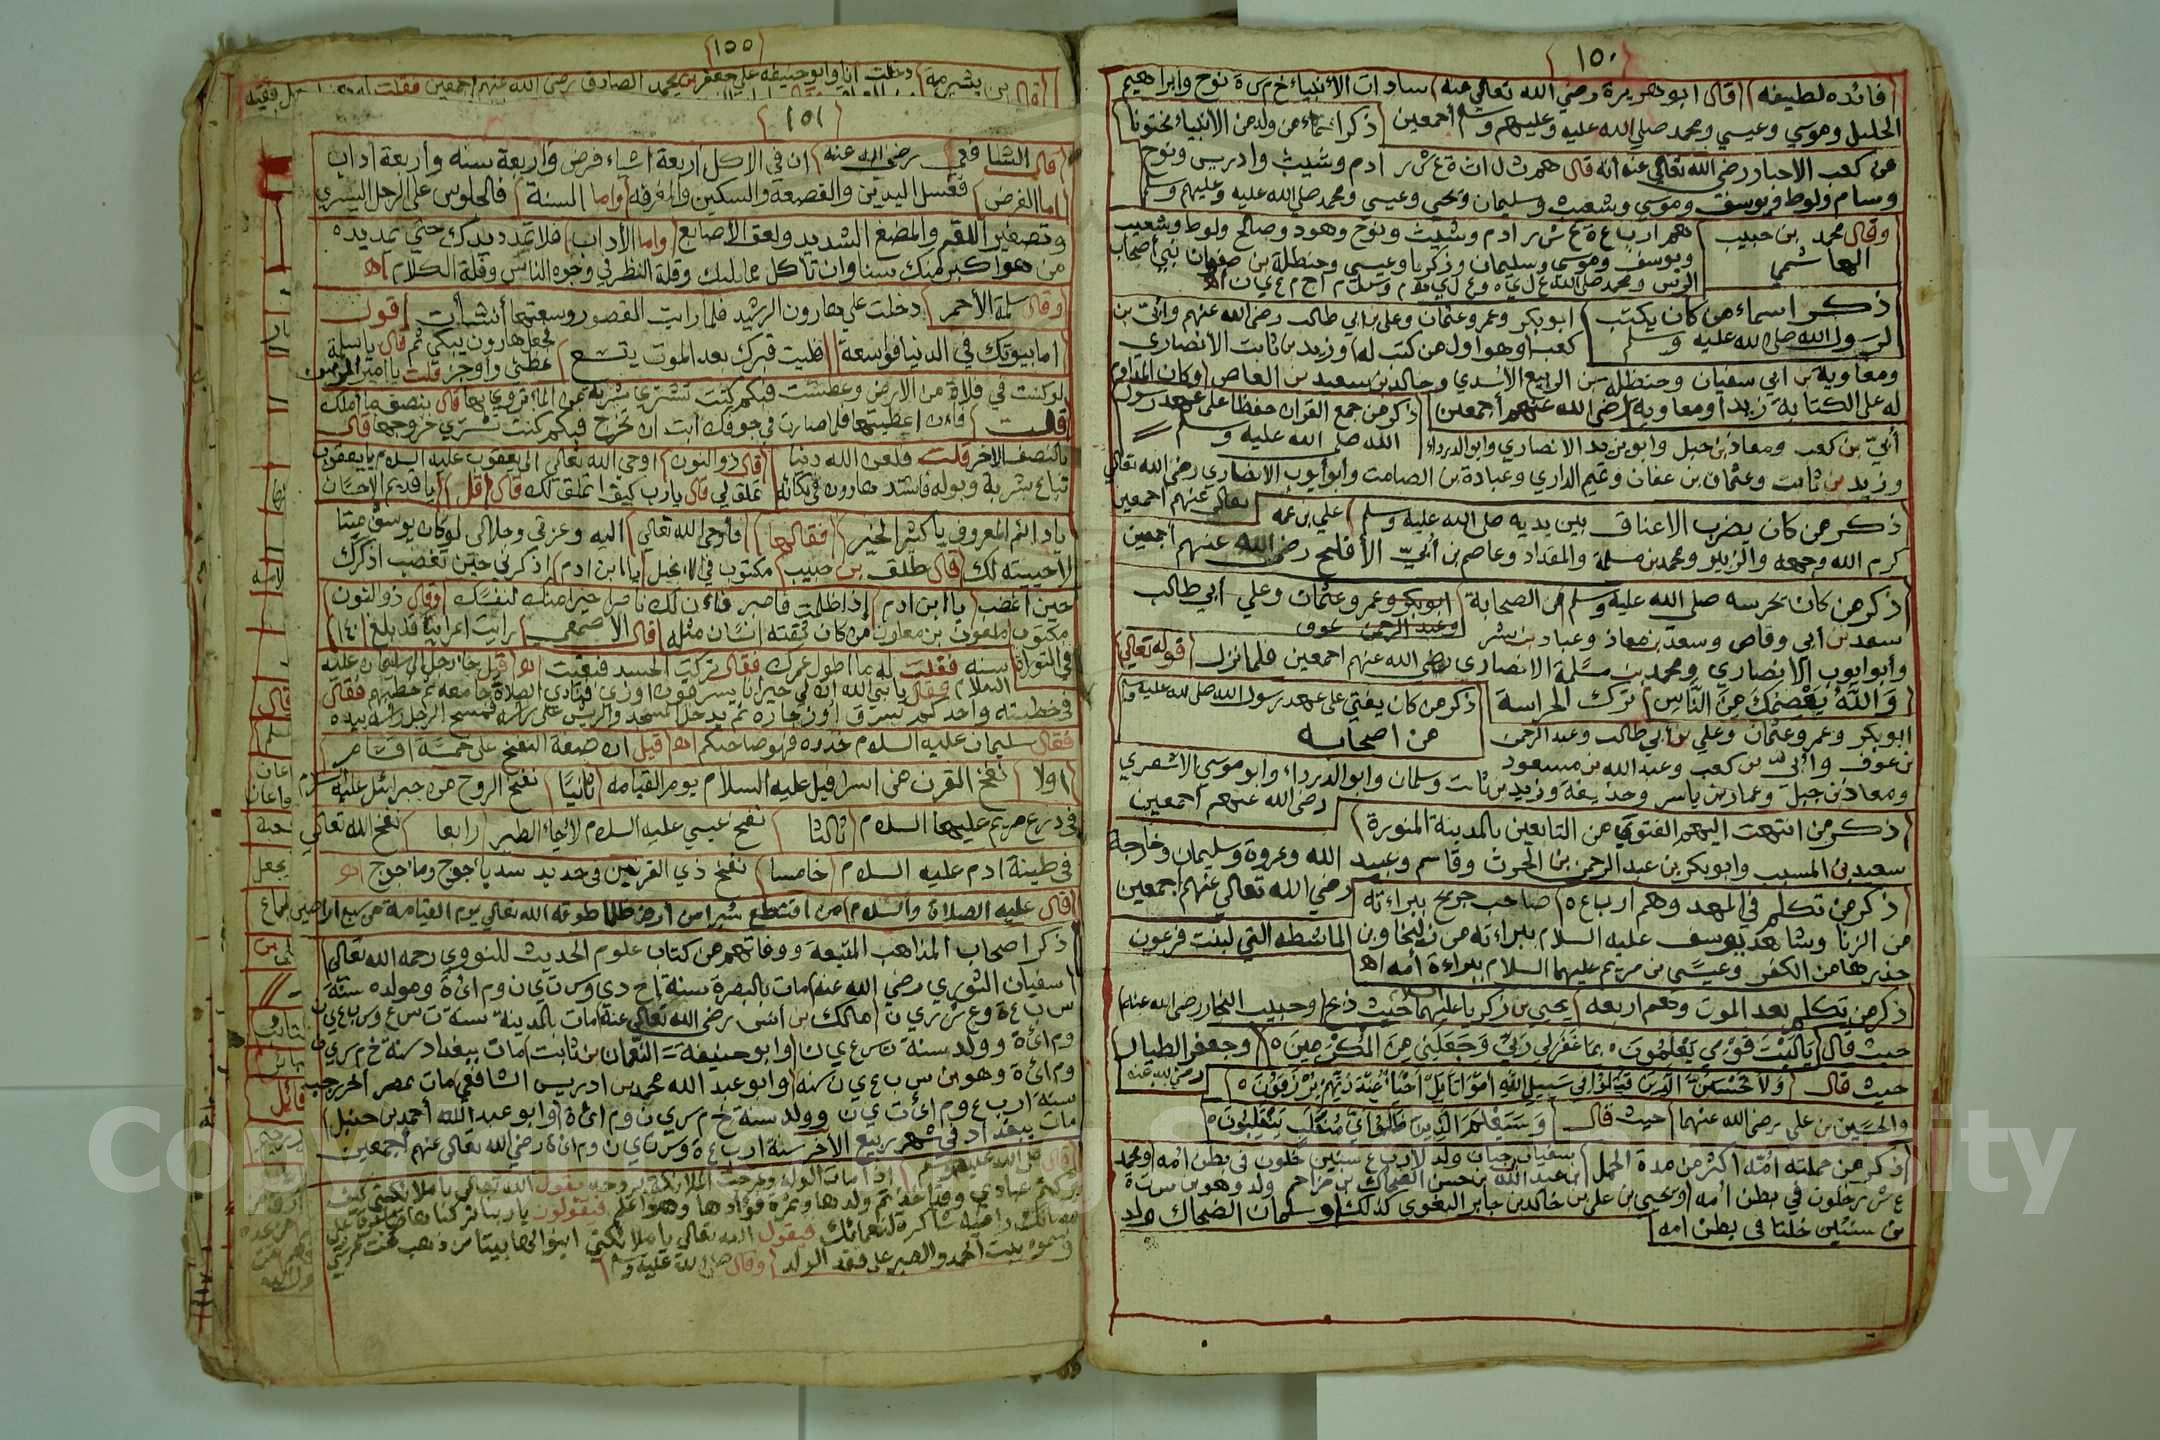 ١٥٠
فائده لطيفه قال ابو هريرة رضي الله تعالي عنه سادات الأنبياء خ م س ة نوح وابراهيم
الخليل وموسي وعيسي ومحمد صلي الله عليه وعليهم وسلم أجمعين ذكر اسماء من ولد من الأنبياء مختونا
عن كعب الاحبار رضي الله تعالي عنه انه قال هم ث ل اث ة ع ش ر ادم وشيث وادريس ونوح
وسام ولوط ويوسف وموسي وشعيب وسليمان ويحيي وعيسي ومحمد صلي الله عليه وعليهم وسلم
وقال محمد بن حبيب الهاشمي هم ارب ع ة ع ش ر ادم وشيث ونوح وهود وصالح ولوط وشعيب
ويوسف وموسي وسليمان وزكريا وعيسي وحنظلة بن صفوان نبي أصحاب
الرس ومحمد صلي الله ع ل ي ه وع ل ي ه م وس ل م اج م ع ي ن اه
ذكر اسماء من كان يكتب لرسول الله صلي الله عليه وسلم ابوبكر وعمر وعثمان وعلي بن ابي طالب رضي الله عنهم وأبيّ بن
كعب وهو اول من كتب له وزيد بن ثابت الأنصاري
ومعاوية بن ابي سفيان وحنظلة بن الربيع الاسدي وخالد بن سعيد بن العاص وكان المداوم
له علي الكتابة زيد ومعاوية رضي الله عنهم أجمعين ذكر من جمع القران حفظا علي عهد رسول
الله صلي الله عليه وسلم أبيّ بن كعب ومعاذ بن جبل وابو زيد الانصاري وابو الدرداء
وزيد بن ثابت وعثمان بن عفان وتميم الداري وعبادة بن الصامت وأبو أيوب الانصاري رضي الله تعالي
تعالي عنهم اجمعين
ذكر من كان يضرب الاعناق بين يديه صلي الله عليه وسلم علي بن عمه
كرم الله وجهه والزبير ومحمد بن مسلمة والمقداد وعاصم بن أبيّ الأفلح رضي الله عنهم أجمعين
ذكر من كان يحرسه صلي الله عليه وسلم من الصحابة ابوبكر وعمر وعثمان وعلي أبي طالب
وعبد الرحمن عوف
سعد بن أبي وقاص وسعد بن معاذ وعباد بن بشر
وأبو ايوب الانصاري ومحمد بن مسلمة الانصاري رضي الله عنهم اجمعين فلما نزل قوله تعالي
وَاللَّهُ يَعْصِمُكَ مِنَ النَّاسِ ترك الحراسة ذكر من كان يفتي علي عهد رسول الله صلي الله عليه وسلم
من اصحابه
ابوبكر وعمر وعثمان وعلي بن أبي طالب وعبد الرحمن
بن عوف وأبيّ بن كعب وعبد الله بن مسعود
ومعاذ بن جبل وعمار بن ياسر وحذيفة وزيد بن ثابت وسلمان وابو الدرداء وابو موسي الاشعري
رضي الله عنهم أجمعين
ذكر من انتهت اليهم الفتوي من التابعين بالمدينة المنورة
سعيد بن المسيب وابوبكر بن عبد الرحمن بن الحرث وقاسم وعبيد الله وعروة وسليمان وخارجة
رضي الله تعالي عنهم اجمعين
ذكر من تكلم في المهد وهم ارب ع ه صاحب جريج ببراءته
من الزنا وشاهد يوسف عليه السلام ببراءته من زليخا وبن الماشطه التي لبنت فرعون
حذرها من الكفر وعيسي بن مريم عليهما السلام ببراءة أمه اه
ذكر من تكلم بعد الموت وهم اربعه يحيي بن زكريا عليهما السلام حيث ذبح وحبيب النجار رضي الله عنه
حيث قال يَالَيْتَ قَوْمِي يَعْلَمُونَ بِمَا غَفَرَ لِي رَبِّي وَجَعَلَنِي مِنَ الْمُكْرَمِينَ وجعفر الطيار
رضي الله عنه
حيث قال وَلَا تَحْسَبَنَّ الَّذِينَ قُتِلُوا فِي سَبِيلِ اللَّهِ أَمْوَاتًا بَلْ أَحْيَاءٌ عِنْدَ رَبِّهِمْ يُرْزَقُونَ
والحسين بن علي رضي الله عنهما حيث قال وَسَيَعْلَمُ الَّذِينَ ظَلَمُوا أَيَّ مُنْقَلَبٍ يَنْقَلِبُونَ
ذكر من حملته أمّه أكثر من مدة الحمل سفيان بن حيان ولد لارب ع سنين خلون في بطن امه ومحمد
بن عبد الله بن حسن الضحاك بن مزاحم ولد وهو بن س ت ة
ع ش ر خلون في بطن امه ويحيي بن علي بن خالد بن جابر البغوي كذلك وسلمان الضحاك ولد
بن سنتين خلتا في بطن امه
١٥٥
قال بن بشرمة دخلت أنا وابو حنيفه علي جعفر بن محمد الصادق رضي الله عنهم اجمعين فقلت
١٥١
قال الشافعي رضي الله عنه ان في الاكل أربعة اشياء فرض وأربعة سنه وأربعة آداب
أما الفرض فغسل اليدين والقصعة والسكين والمغرفه واما السنة فالجلوس علي الرجل اليسري
وتصغير اللقم والمضغ الشديد ولعق الأصابع واما الأداب فلا تمد يديك حتي تمد يده
من هو أكبر منك سنا وان تأكل مما يليك وقلة النظر في وجوه الناس وقلة الكلام اه
وقال سلمة الأحمر دخلت علي هارون الرشيد فلما رايت القصور وسعتها أنشأت أقول
اما بيوتك في الدنيا فواسعة فليت قبرك بعد الموت يتسع فجعل هارون يبكي ثم قال يا سلمة
عظني وأوجز قلت يا امير المؤمنين
لو كنت في فلاة من الارض وعطشت فبكم كنت تشتري شربة من الماء تروي بها قال بنصف ما أملك
قلت فاءن اعطيتها فلما صارت في جوفك ابت ان تخرج فبكم كنت تشتري خروجها قال
بالنصف الاخر قلت فلعن الله دنيا تباع بشربة وبوله فاشتد هارون في بكائه
قال ذو النون اوحي الله تعالي الي يعقوب عليه السلام يا يعقوب
تملق لي قال يا رب كيف اتملق لك قال قل يا قديم الاحسان
يا دائم المعروف يا كثير الخير فقالها فأوحي الله تعالي اليه وعزتي وجلالي لو كان يوسف ميتا
لاحييته لك قال طلق بن حبيب مكتوب في الانجيل يا ابن ادم اذكرني حين تغضب اذكرك
حين أغضب يا ابن ادم إذا ظلمت فاصبر فاءن لك ناصر خير منك لنفسك وقال ذو النون
مكتوب في التوراة ملعون من كان ثقته انسان مثله قال الاصمعي رايت اعرابيا قد بلغ ١٤٠
سنه فقلت له ما اطول عمرك فقال تركت الحسد فبقيت اه قيل جاء رجل الي سليمان عليه
السلام فقال يا نبي الله ان لي جيرانا يسرقون اوزي فنادي الصلاة جامعه ثم خطبهم فقال
في خطبته واحدكم يسرق أوز جاره ثم يدخل المسجد والريش علي راسه فمسح الرجل راسه بيده
فقال سليمان عليه السلام خذوه فهو صاحبكم اه قيل ان صيغة النفخ علي خمسة أقسام
اولا نفخ القرن من اسرافيل عليه السلام يوم القيامه ثانيًا نفخ الروح من جبرائيل عليه السلام
في درع مريم عليها السلام ثالثا نفخ عيسي عليه السلام لاحياء الطير رابعا نفخ الله تعالي
في طينة ادم عليه السلام خامسا نفخ ذي القرنين في حديد سد ياجوج وماجوج اه
قال عليه الصلاة والسلام من اقتطع شبرا من أرض ظلما طوقه الله تعالي يوم القيامة من سبع اراضين
ذكر اصحاب المذاهب المتبعة ووفاتهم من كتاب علوم الحديث للنووي رحمه الله تعالي
سفيان الثوري رضي الله عنه مات بالبصرة سنة اح دي وس ت ي ن وم ائ ة ومولده سنة
س ب ع ة وع ش ري ن مالك بن انس رضي الله تعالي عنه مات بالمدينة سنة ت س ع وس ب ع ي ن
وم ائ ة وولد سنة ت س ع ي ن وابو حنيفة النعمان بن ثابت مات ببغداد سنة خ م س ي ن
وم ائ ة وهو بن س ب ع ي ن سنه وابو عبد الله محمد بن ادريس الشافعي مات بمصر اخر رجب
سنة ارب ع وم ائ ت ي ن وولد سنة خ م س ي ن وم ائ ة وابو عبد الله أحمد بن حنبل
مات ببغداد في شهر ربيع الأخر سنة ارب ع ة وس ت ي ن وم ائ ة رضي الله تعالي عنهم أجمعين
قال صلي الله عليه وسلم اذا مات الولد وعرجت الملائكة بروحه يقول الله تعالي يا ملائكتي كيف
تركتم عبادي وقد أخذتم ولدها وثمرة فؤادها وهو أعلم فيقولون يا ربنا تركناها
راضيه شاكرة لنعمائك فيقول الله تعالي يا ملائكتي ابنوا لها بيتا من ذهب تحت عرشي
وسموه بيت الحمد والصبر علي فقد الولد وقال صلي الله عليه وسلم